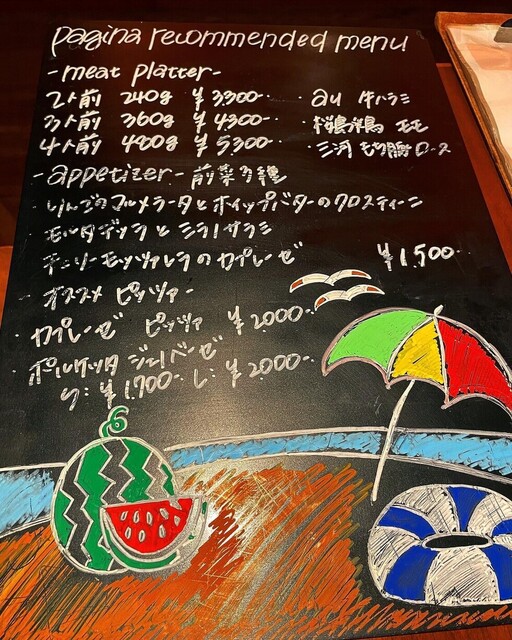 pagina recommended menu
- meat platter -
2人前 240g ¥3300-
・au 牛ハラミ
3人前 360g ¥4300-
・桜鶏 モモ
4人前 480g ¥5300-
・三河もち豚ロース
- appetizer - 前菜3種
・りんごのマルメラータとホイップバターのクロスティーニ
・モルタデッラとミラノサラミ
・チェリーモッツァレラのカプレーゼ ¥1,500-
- オススメ ピッツァ -
・カプレーゼ ピッツァ ¥2000-
・ポルケッタ ジェノベーゼ
S: ¥1,700- L: ¥2000-